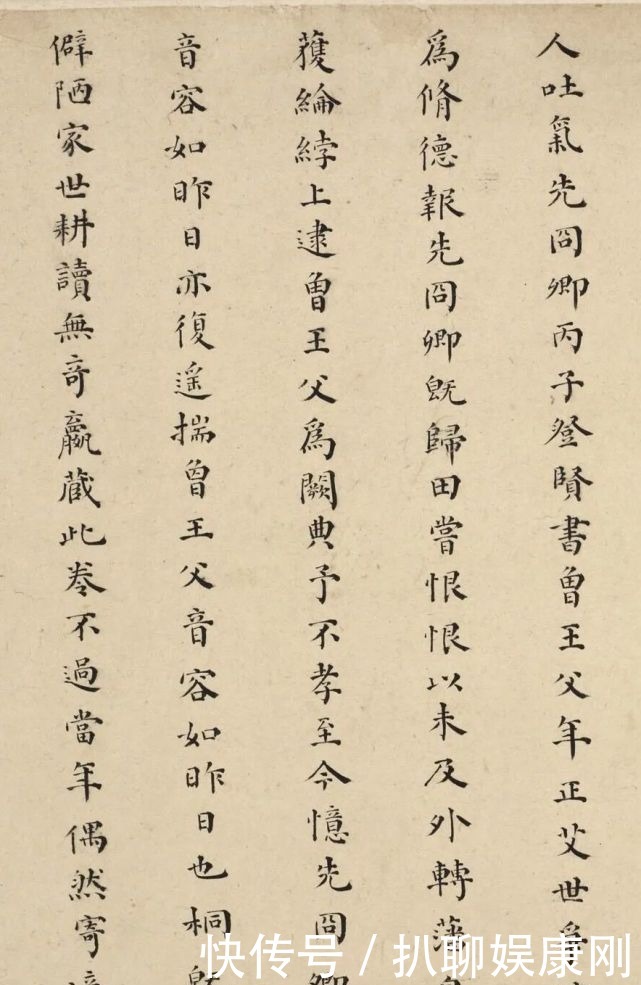 人吐氣先冏卿丙子登賢書曾王父年正艾世爭
爲脩德報先冏卿旣歸田嘗恨恨以未及外轉藩
蒦綸綍上逮曾王父爲闕典予不孝至今憶先冏卿
音容如昨日亦復遥揣曾王父音容如昨日也桐
僻陋家世耕讀無竒羸蔵此卷不過當年偶然寄
快传号 / 扒聊娱康刚